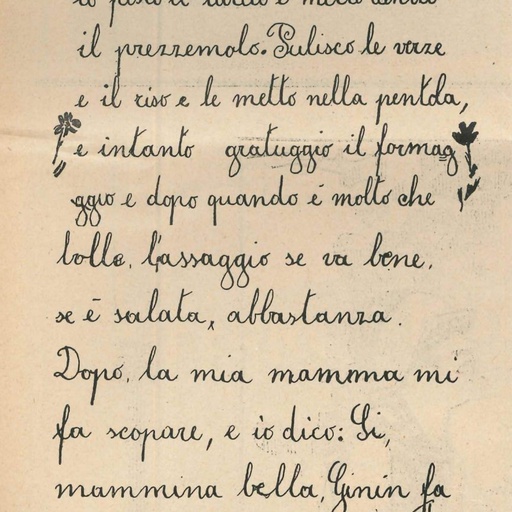 io pesto il lardo e metto dentro
il prezzemolo. Pulisco le verze
e il riso e le metto nella pentola,
e intanto gratuggio il formag
ggio e dopo quando é molto che
bolle, l'assaggio se va bene,
se é salata, abbastanza.
Dopo, la mia mamma mi
fa scopare, e io dico: Si,
mammina bella, Ginin fa